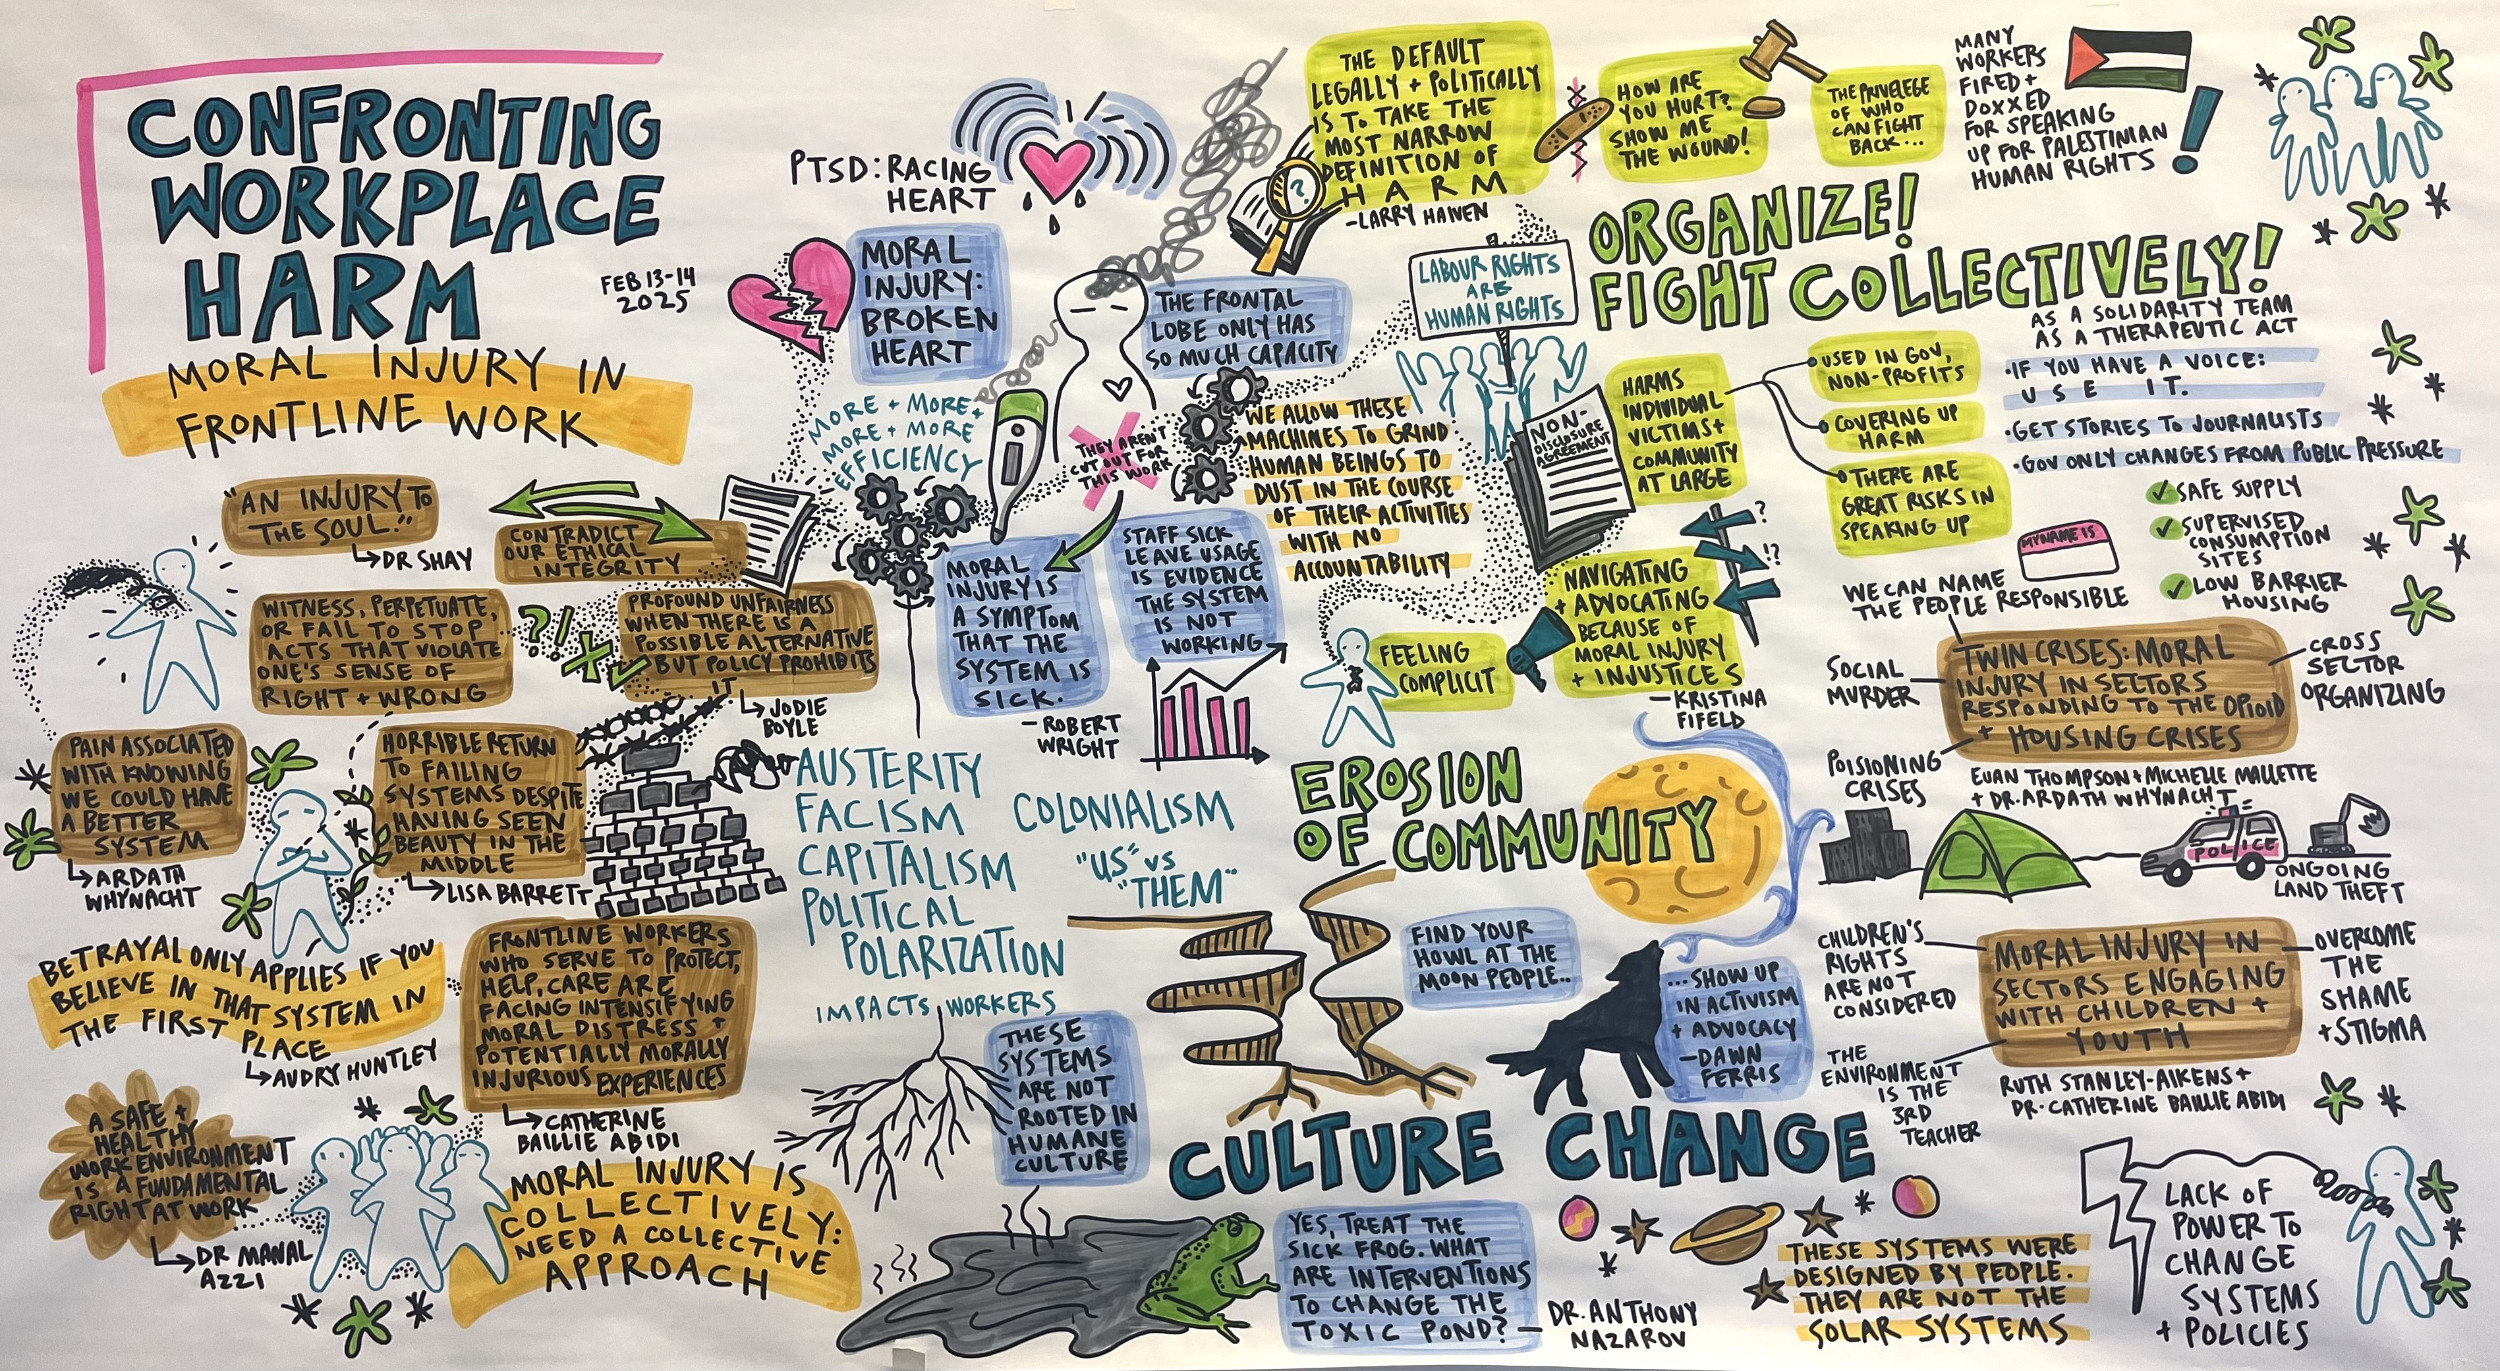 CONFRONTING
WORKPLACE
HARM
FEB 13-14
2025
MORAL INJURY IN
FRONTLINE WORK
"AN INJURY TO
THE SOUL."
DR SHAY
CONTRADICT
OUR ETHICAL
INTEGRITY
WITNESS, PERPETUATE,
OR FAIL TO STOP
ACTS THAT VIOLATE
ONE'S SENSE OF
RIGHT + WRONG
?!
PROFOUND UNFAIRNESS
WHEN THERE IS A
POSSIBLE ALTERNATIVE
BUT POLICY PROHIBITS
IT
JODIE
BOYLE
PAIN ASSOCIATED
WITH KNOWING
WE COULD HAVE
A BETTER
SYSTEM
ARDATH
WHYNACHT
HORRIBLE RETURN
TO FAILING
SYSTEMS DESPITE
HAVING SEEN
BEAUTY IN THE
MIDDLE
LISA BARRETT
BETRAYAL ONLY APPLIES IF YOU
BELIEVE IN THAT SYSTEM IN
THE FIRST PLACE
AUDRY HUNTLEY
FRONTLINE WORKERS
WHO SERVE TO PROTECT,
HELP, CARE ARE
FACING INTENSIFYING
MORAL DISTRESS +
POTENTIALLY MORALLY
INJURIOUS EXPERIENCES
CATHERINE
BAILLIE ABIDI
A SAFE +
HEALTHY
WORK ENVIRONMENT
IS A FUNDAMENTAL
RIGHT AT WORK
DR MANAL
AZZI
MORAL INJURY IS
COLLECTIVELY:
NEED A COLLECTIVE
APPROACH
PTSD: RACING
HEART
MORAL
INJURY:
BROKEN
HEART
THE FRONTAL
LOBE ONLY HAS
SO MUCH CAPACITY
MORE + MORE +
MORE + MORE
EFFICIENCY
THEY AREN'T
CUT OUT FOR
THIS WORK
WE ALLOW THESE
MACHINES TO GRIND
HUMAN BEINGS TO
DUST IN THE COURSE
OF THEIR ACTIVITIES
WITH NO
ACCOUNTABILITY
MORAL
INJURY IS
A SYMPTOM
THAT THE
SYSTEM IS
SICK.
- ROBERT
WRIGHT
STAFF SICK
LEAVE USAGE
IS EVIDENCE
THE SYSTEM
IS NOT
WORKING
AUSTERITY
FACISM
CAPITALISM
POLITICAL
POLARIZATION
COLONIALISM
"US" VS
"THEM"
IMPACTS WORKERS
THESE
SYSTEMS
ARE NOT
ROOTED IN
HUMANE
CULTURE
THE DEFAULT
LEGALLY + POLITICALLY
IS TO TAKE THE
MOST NARROW
DEFINITION OF
HARM
- LARRY HAIVEN
?
HOW ARE
YOU HURT?
SHOW ME
THE WOUND!
THE PRIVELEGE
OF WHO
CAN FIGHT
BACK...
MANY
WORKERS
FIRED +
DOXXED
FOR SPEAKING
UP FOR PALESTINIAN
HUMAN RIGHTS
!
ORGANIZE!
FIGHT COLLECTIVELY!
LABOUR RIGHTS
ARE
HUMAN RIGHTS
AS A SOLIDARITY TEAM
AS A THERAPEUTIC ACT
• IF YOU HAVE A VOICE:
USE IT.
• GET STORIES TO JOURNALISTS
• GOV ONLY CHANGES FROM PUBLIC PRESSURE
SAFE SUPPLY
SUPERVISED
CONSUMPTION
SITES
LOW BARRIER
HOUSING
NON-
DISCLOSURE
AGREEMENT
HARMS
INDIVIDUAL
VICTIMS +
COMMUNITY
AT LARGE
USED IN GOV,
NON-PROFITS
COVERING UP
HARM
THERE ARE
GREAT RISKS IN
SPEAKING UP
NAVIGATING
+ ADVOCATING
BECAUSE OF
MORAL INJURY
+ INJUSTICES
- KRISTINA
FIFELD
?
!?
FEELING
COMPLICIT
MY NAME IS
WE CAN NAME
THE PEOPLE RESPONSIBLE
SOCIAL
MURDER
POISIONING
CRISES
TWIN CRISES: MORAL
INJURY IN SECTORS
RESPONDING TO THE OPIOID
+ HOUSING CRISES
CROSS
SECTOR
ORGANIZING
EUAN THOMPSON + MICHELLE MALLETTE
+ DR. ARDATH WHYNACHT
POLICE
ONGOING
LAND THEFT
EROSION
OF COMMUNITY
FIND YOUR
HOWL AT THE
MOON PEOPLE...
...SHOW UP
IN ACTIVISM
+ ADVOCACY
- DAWN
FERRIS
CHILDREN'S
RIGHTS
ARE NOT
CONSIDERED
THE
ENVIRONMENT
IS THE
3RD
TEACHER
MORAL INJURY IN
SECTORS ENGAGING
WITH CHILDREN +
YOUTH
OVERCOME
THE
SHAME
+ STIGMA
RUTH STANLEY-AIKENS +
DR. CATHERINE BAILLIE ABIDI
CULTURE CHANGE
YES, TREAT THE
SICK FROG. WHAT
ARE INTERVENTIONS
TO CHANGE THE
TOXIC POND?
- DR. ANTHONY
NAZAROV
THESE SYSTEMS WERE
DESIGNED BY PEOPLE.
THEY ARE NOT THE
SOLAR SYSTEMS
LACK OF
POWER TO
CHANGE
SYSTEMS
+ POLICIES